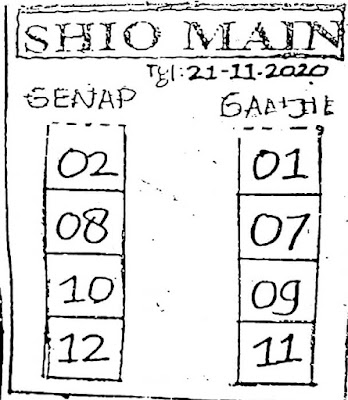 SHIO MAIN
Tgl: 21-11-2020
GENAP GANJIL
02 01
08 07
10 09
12 11